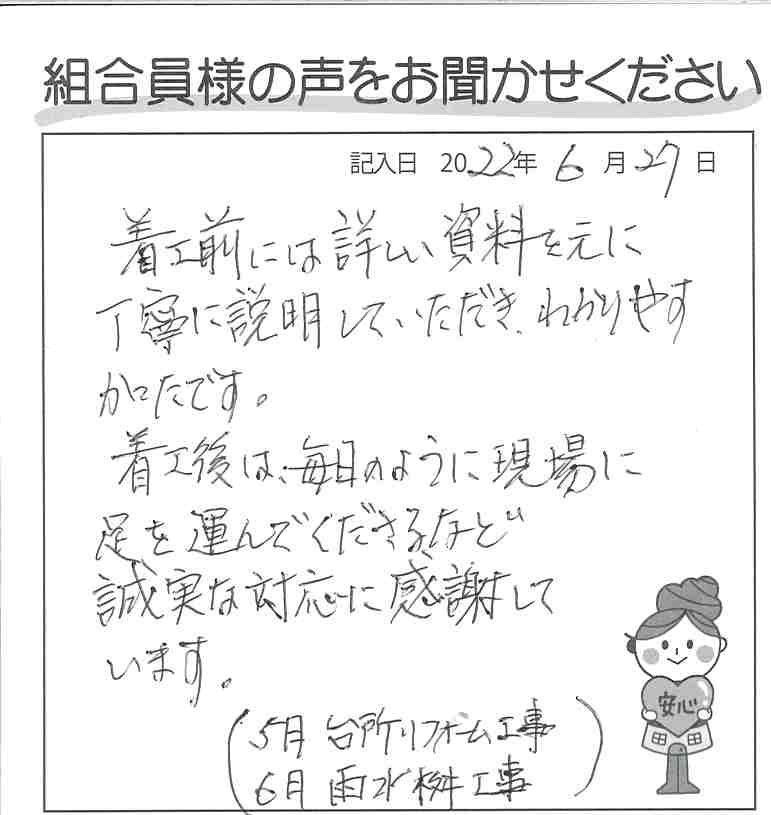 組合員様の声をお聞かせください
記入日 2022年 6月27日
着工前には詳しい資料を元に
丁寧に説明していただき、わかりやす
かったです。
着工後は、毎日のように現場に
足を運んでくださるなど
誠実な対応に感謝して
います。
安心
(5月 台所リフォーム工事
6月 雨水桝工事)